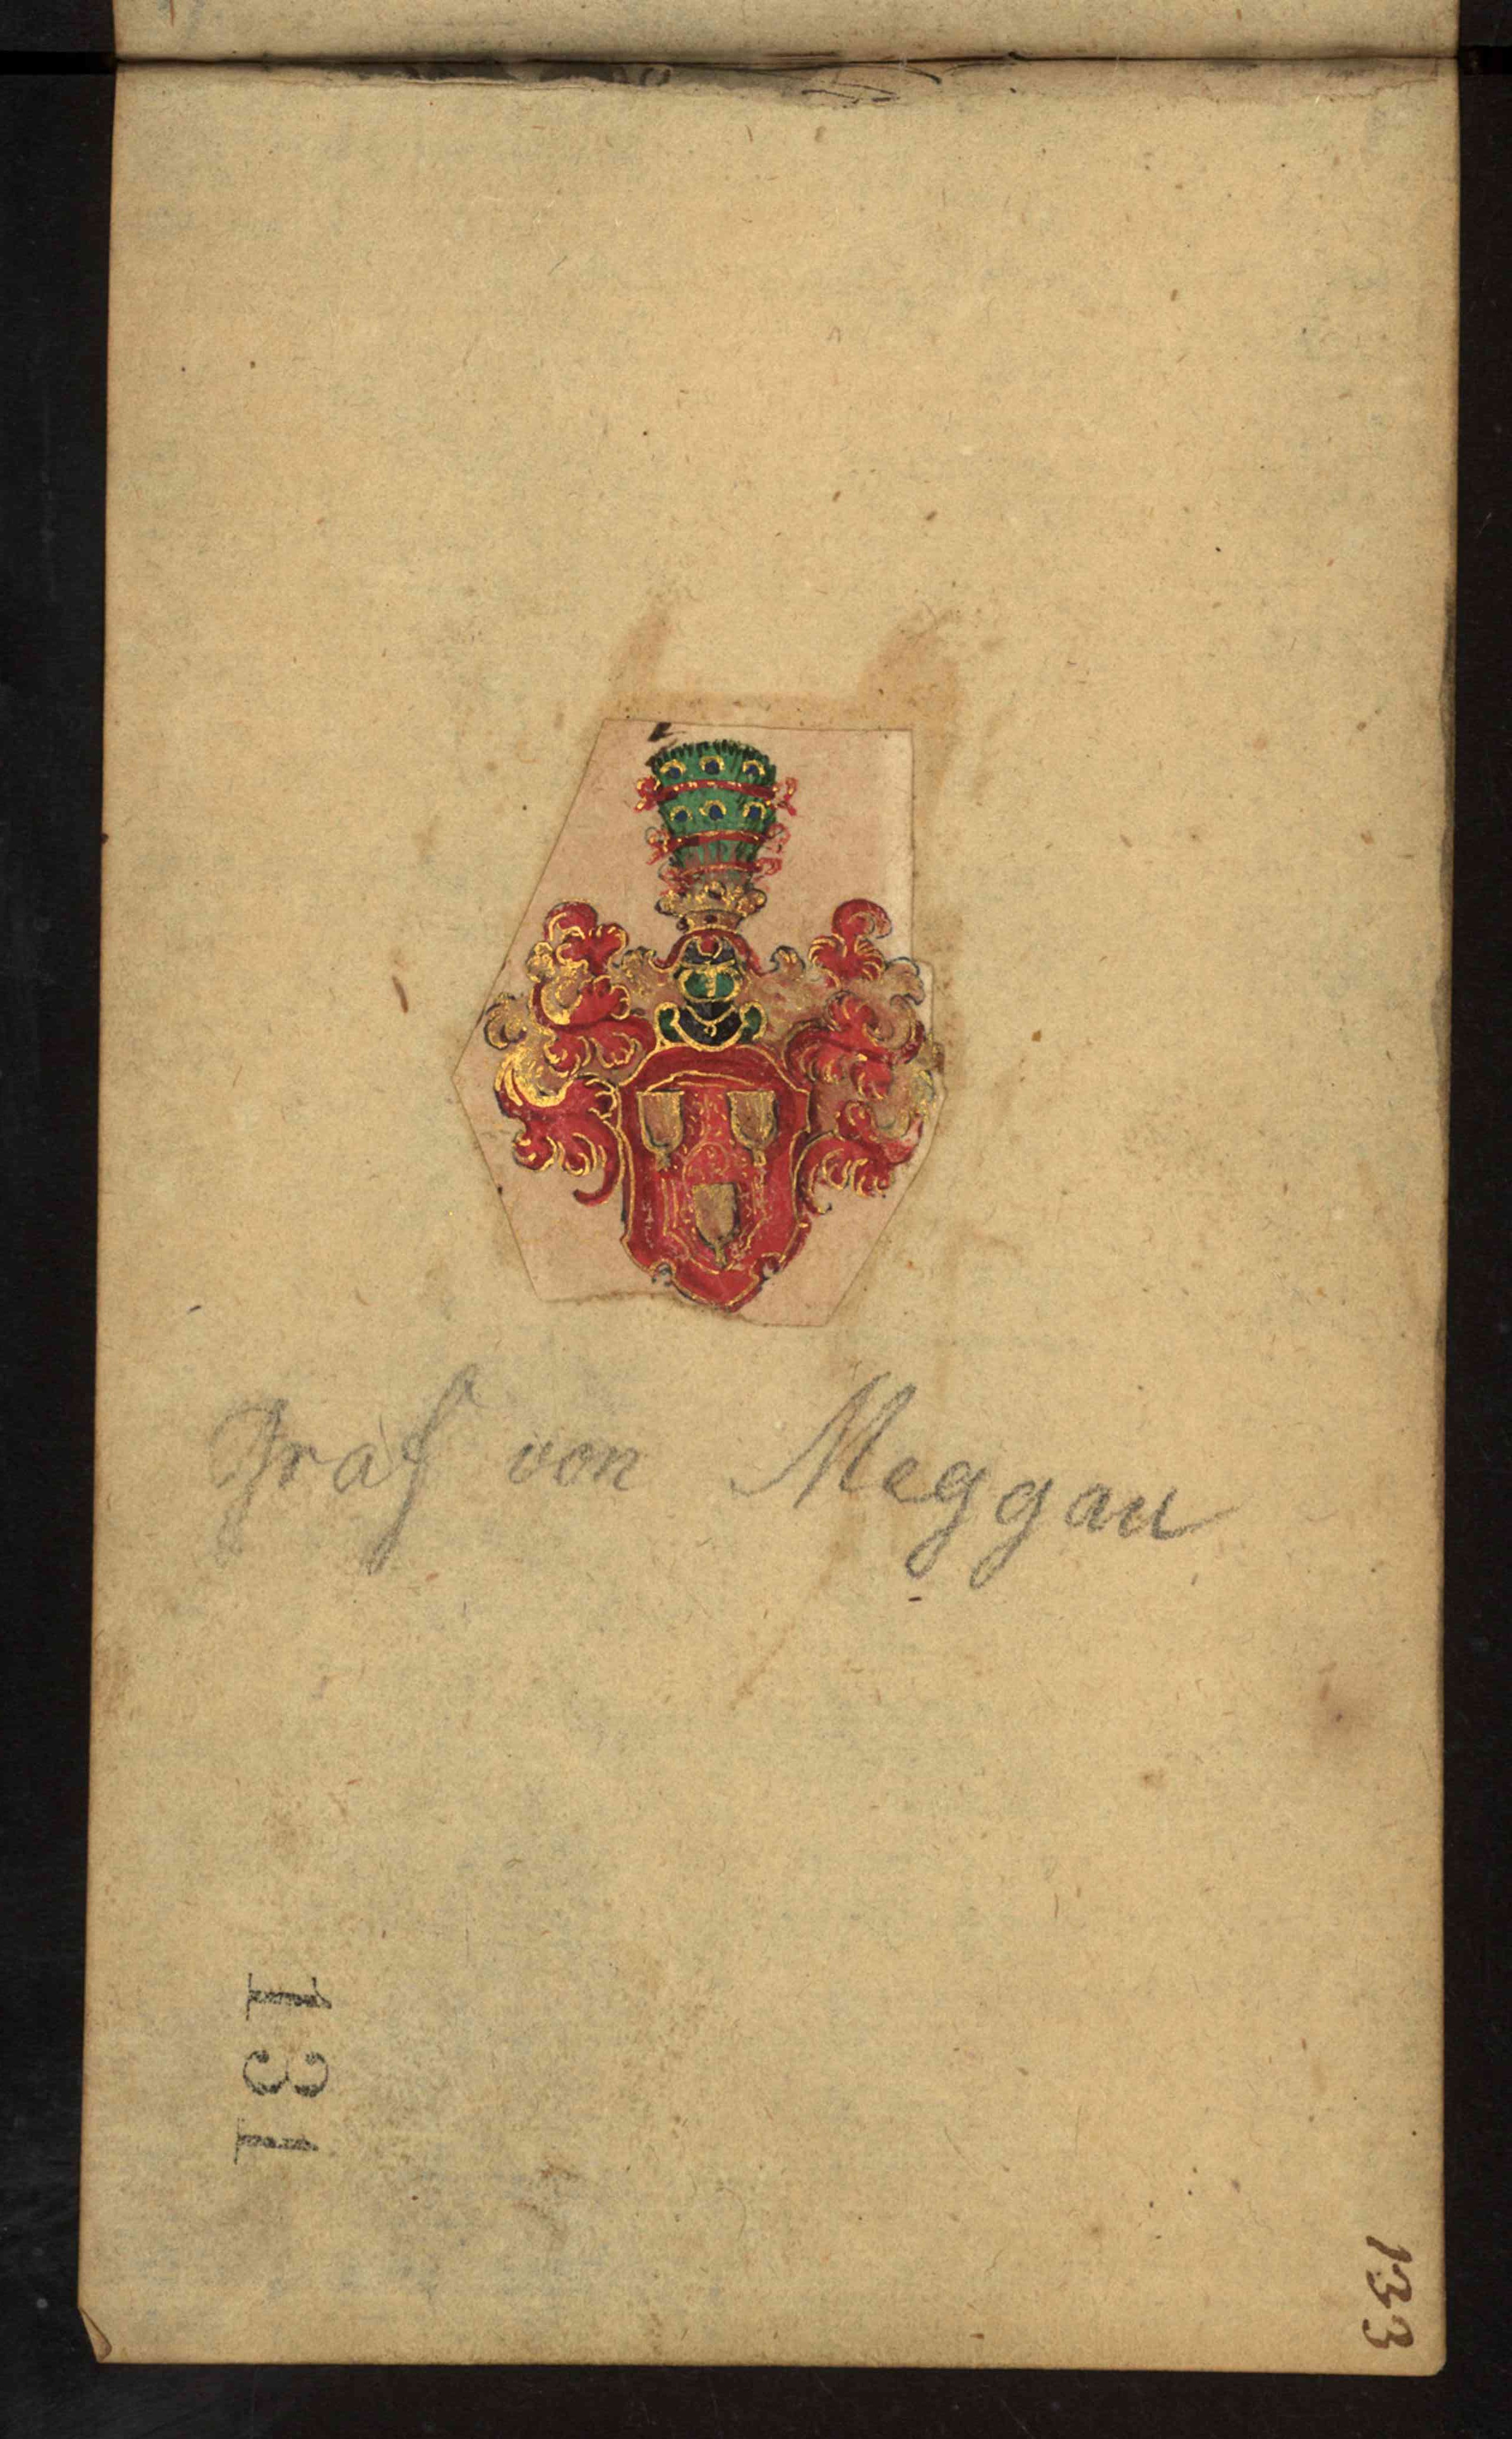 Graf von Meggau
131
133